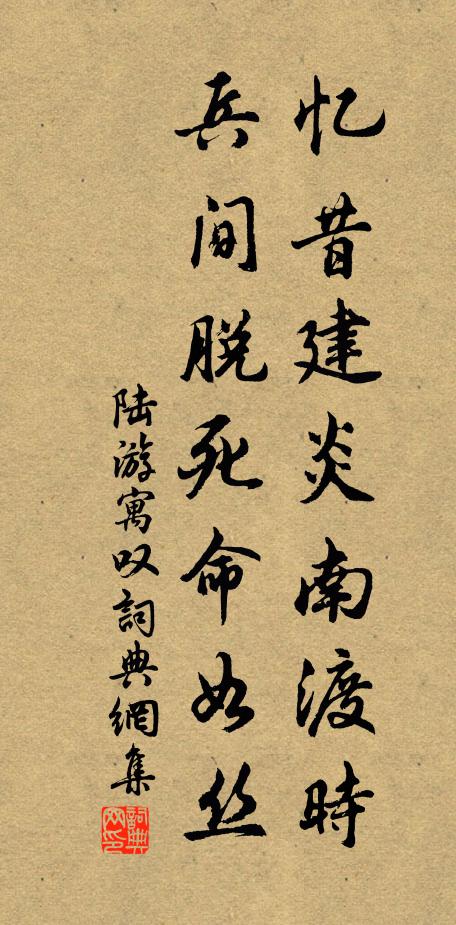 忆昔建炎南渡時
兵间脱死命如丝
陆游寓叹詞典網集
詞典网印